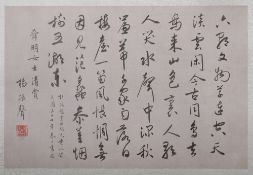 六朝文物草連空天
淡雲閒今古同鳥去
鳥來山色裏人歌
人哭水聲中深秋
簾幕千家雨落日
樓臺一笛風惆悵無
因見范蠡參差煙
樹五湖東
明女士清賞
楊振聲